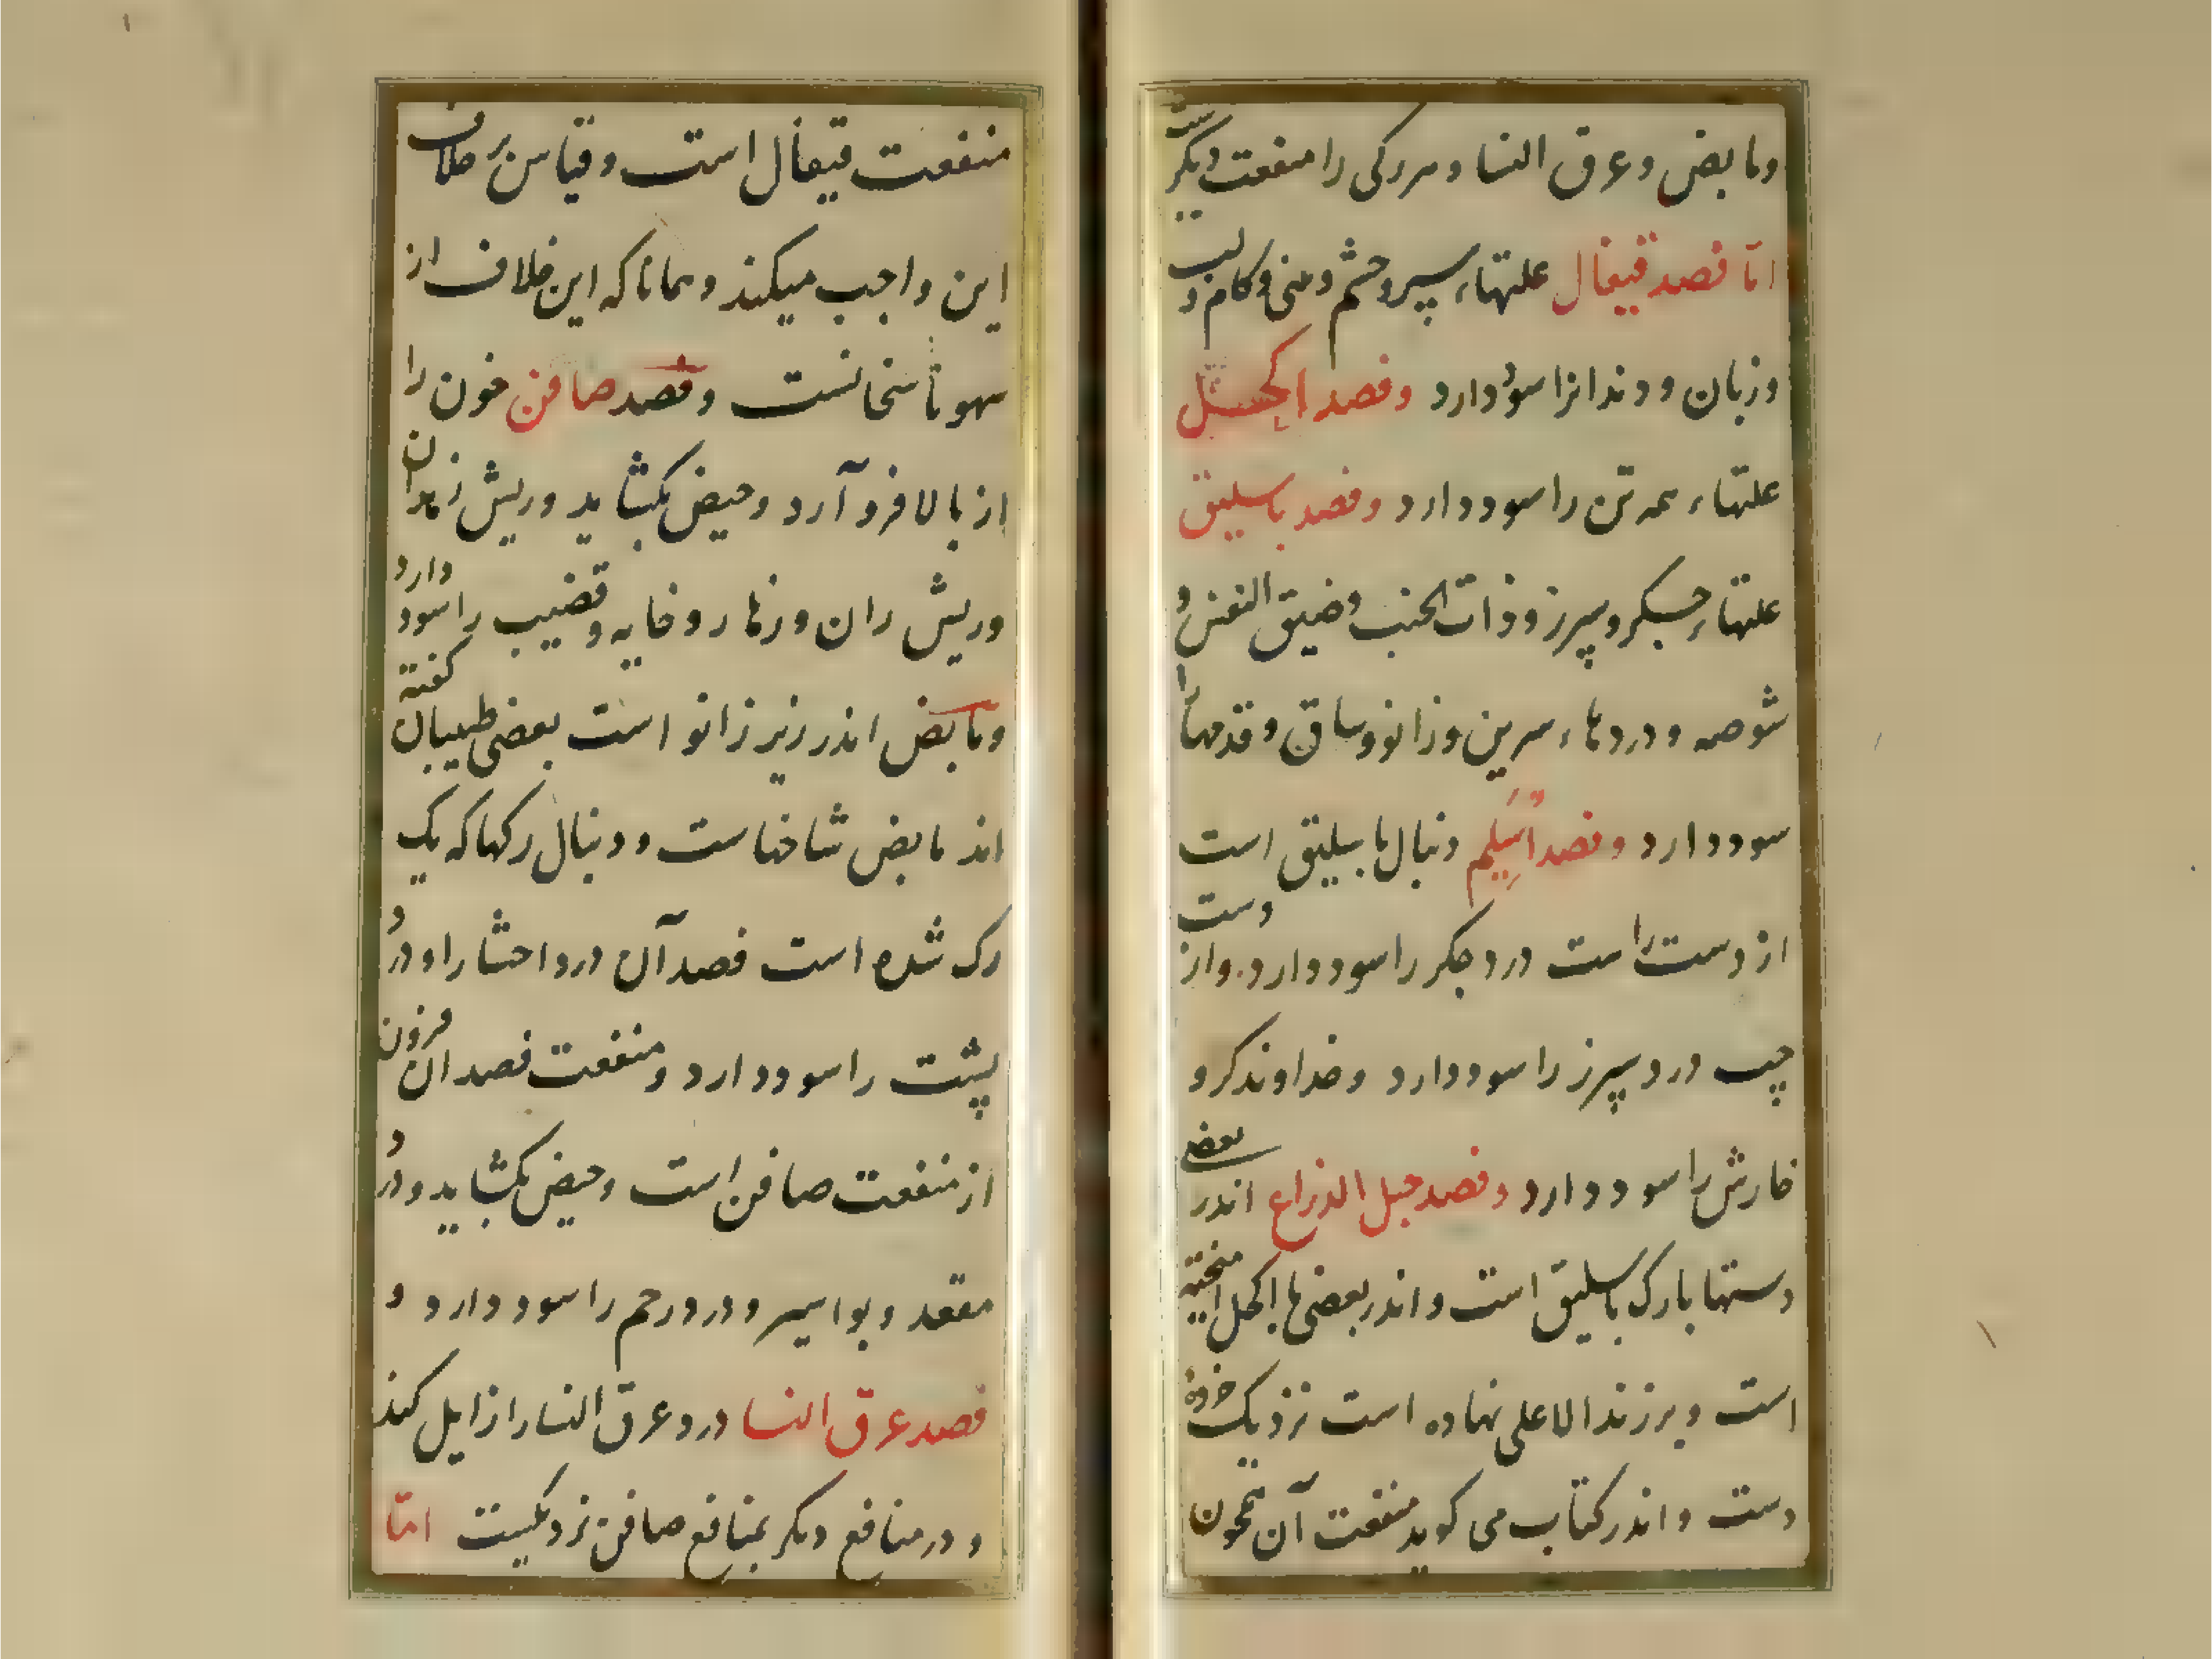 ومابض وعرق النسا و هر رکی را منفعت دیکرست
امّا فصد قیفال علتهاء سر و چشم و بینی و کام و لب
وزبان و دندانرا سود دارد وفصد اکحل
علتهاء همه تن را سود دارد وفصد باسلیق
علتهاء جکر و سپرز و ذات الجنب و ضیق النفس و
شوصه و دردهاء سرین و زانو و ساق و قدمها را
سود دارد وفصد اسیلم دنبال باسلیق است
از دست راست درد جکر را سود دارد واز دست
چپ درد سپرز را سود دارد و خداوند کر و
خارش را سود دارد وفصد حبل الذراع اندر بعضی
دستها با رک باسلیق است و اندر بعضی با اکحل امیخته
است و بر زند الاعلی نهاده است نزدیک خرده
دست و اندر کتاب می کوید منفعت آن همچون
منفعت قیفال است و قیاس بر خلاف
این واجب میکند و همانا که این خلاف از
سهو ناسخانست وفصد صافن خون را
از بالا فرو آرد و حیض بکشاید و ریش زهدان
وریش ران و زهار و خایه و قضیب را سود دارد
ومابض اندر زیر زانو است بعضی طبیبان کفته
اند مابض شاخهاست و دنبال رکها که یک
رک شده است فصد آن درد احشا را و درد
پشت را سود دارد و منفعت فصد ان فزون
از منفعت صافن است و حیض بکشاید و درد
مقعد و بواسیر و درد رحم را سود دارد و
فصد عرق النسا درد عرق النسا را زایل کند
و در منافع دیکر بمنافع صافن نزدیکست امّا